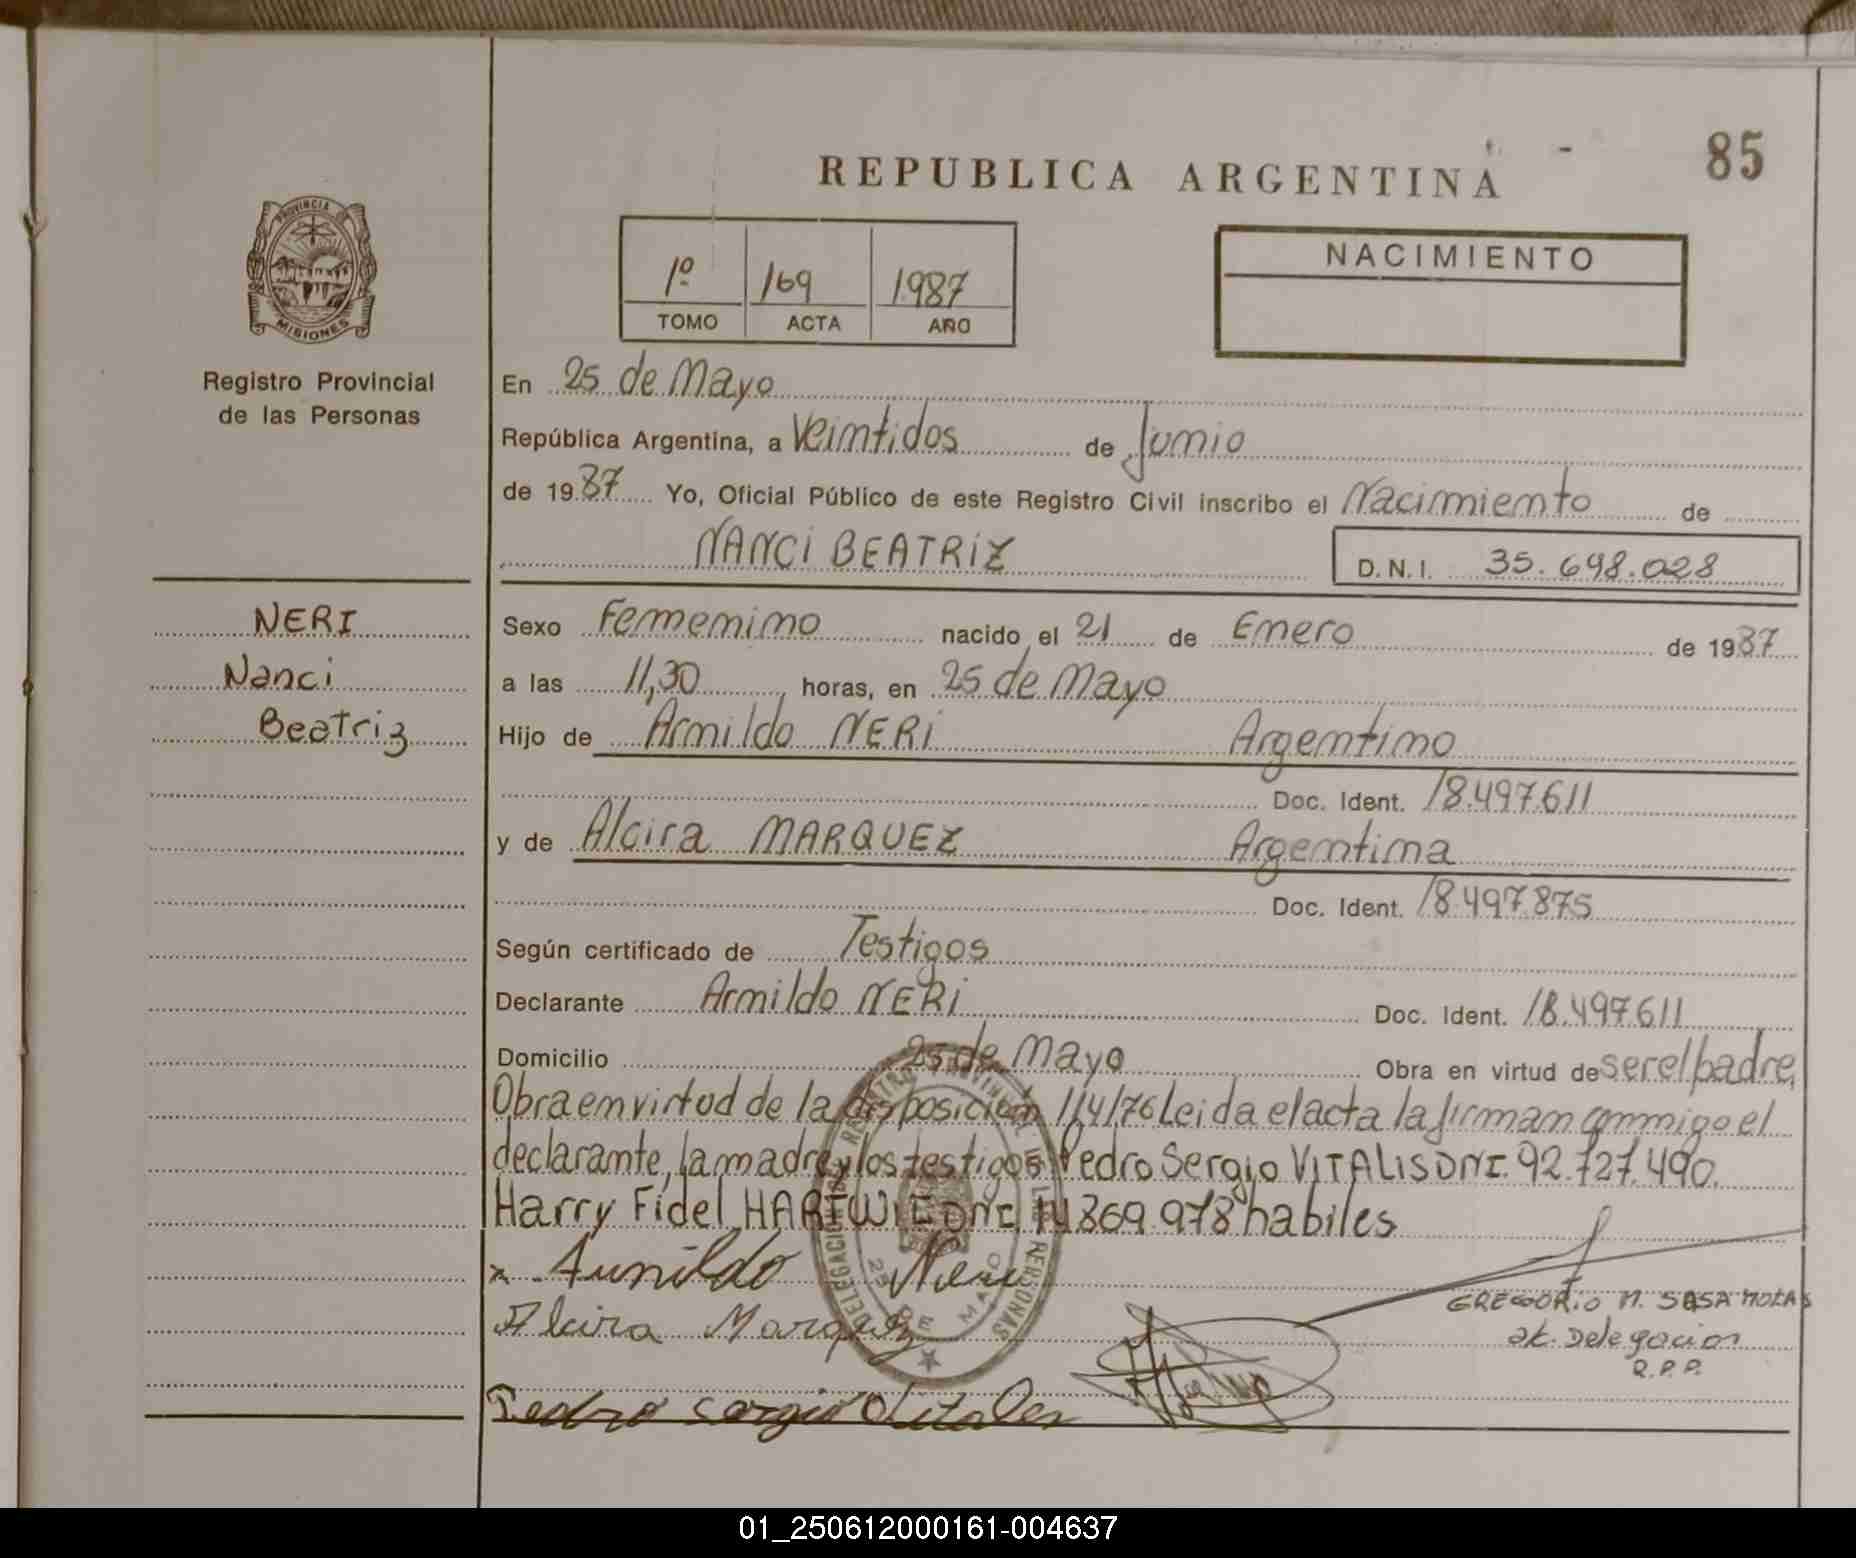 85
REPUBLICA ARGENTINA
PROVINCIA DE
MISIONES
Registro Provincial
de las Personas
1º 169 1987
TOMO ACTA AÑO
NACIMIENTO
En 25 de Mayo
República Argentina, a Veintidos de Junio
de 1987 Yo, Oficial Público de este Registro Civil inscribo el Nacimiento de
NANCI BEATRIZ D.N.I. 35.698.028
NERI
Nanci
Beatriz
Sexo Femenino nacido el 21 de Enero de 1987
a las 11,30 horas, en 25 de Mayo
Hijo de Arnildo NERI Argentino
Doc. Ident. 18.497.611
y de Alcira MARQUEZ Argentina
Doc. Ident. 18.497.875
Según certificado de Testigos
Declarante Arnildo NERI Doc. Ident. 18.497.611
Domicilio 25 de Mayo Obra en virtud de ser el padre,
Obra en virtud de la disposición 114/76 Leida el acta la firman conmigo el
declarante, la madre y los testigos Pedro Sergio VITALIS DNI. 92.727.490.
Harry Fidel HARTWIG DNI. 14.869.978 habiles
x Arnildo Neri
Alcira Marquez
Pedro Sergio Vitales
GREGORIO M. SOSA MOLAS
DELEGACION REGISTRO PROVINCIAL DE LAS PERSONAS
25 DE MAYO
Delegacion
R.P.P.
01_250612000161-004637